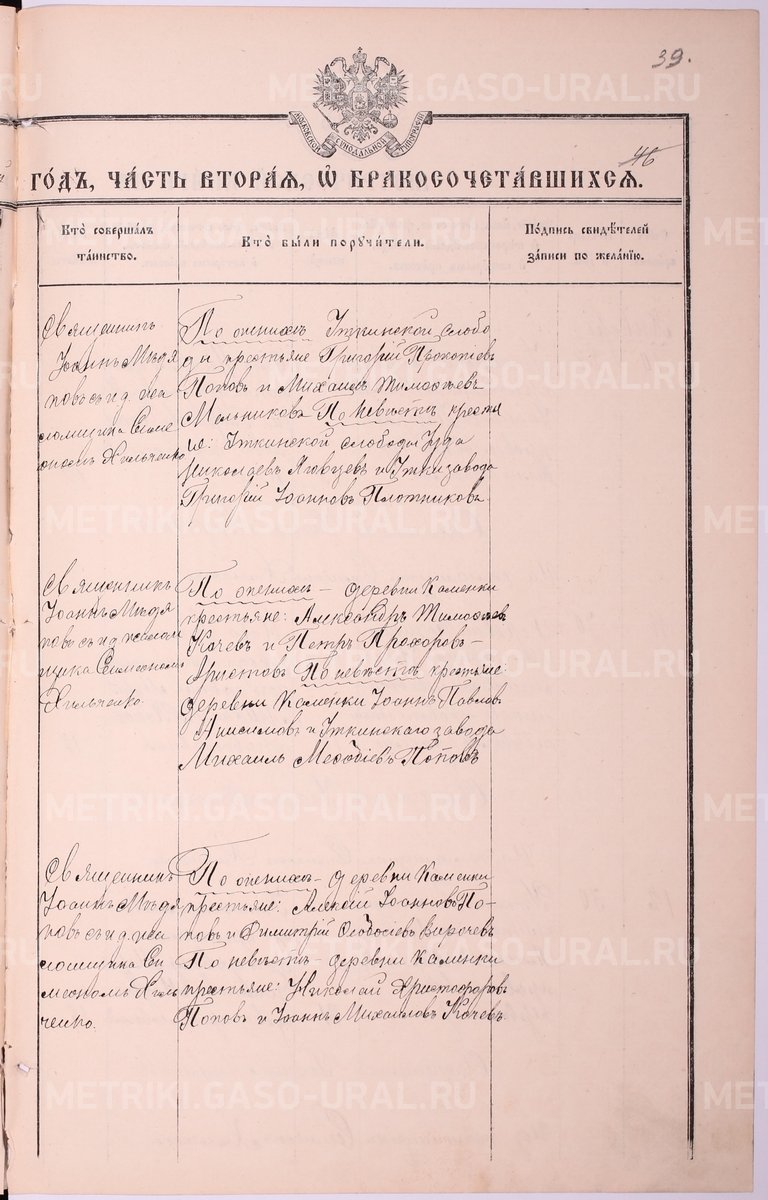 39.
METRIKI.GASO-URAL.RU
МОСКОВСКОЙ СѴНОДАЛЬНОЙ ТИПОГРАФІИ
46
ГО́ДЪ, ЧА́СТЬ ВТОРА́Я, Ѽ БРАКОСОЧЕТА́ВШИХСЯ.
Кто̀ соверша́лъ
та́инство.
Кто̀ бы́ли порꙋчи́тели.
По́дпись свидѣ́телей
за́писи по жела́нїю.
Священникъ
Іоаннъ Мѣдя
ковъ съ и. д. пса
ломщика Симе
ономъ Хильченко
По женихѣ Уткинской слобо
ды крестьяне Григорій Прокопіевъ
Поповъ и Михаилъ Тимоѳеевъ
Мельниковъ По невѣстѣ крестья
не: Уткинской слободы
Николаевъ и Утки завода
Григорій Іоанновъ Плотниковъ
Священникъ
Іоаннъ Мѣдя
ковъ съ и. д. псалом
щика Симеономъ
Хильченко
По женихѣ – деревни Каменки
крестьяне: Александръ Тимоѳеевъ
Качевъ и Петръ Прохоровъ –
Аристовъ По невѣстѣ крестьяне:
деревни Каменки Іоаннъ Павловъ
Анисимовъ и Уткинскаго завода
Михаилъ Меѳодіевъ Поповъ
Священникъ
Іоаннъ Мѣдя
ковъ съ и. д. пса
ломщика Си
меономъ Хиль
ченко.
По женихѣ – деревни Каменки
крестьяне: Алексій Іоанновъ По-
повъ и Димитрій Ѳеодосіевъ
По невѣстѣ – деревни Каменки
крестьяне: Николай Христофоровъ
Поповъ и Іоаннъ Михаиловъ Качевъ.